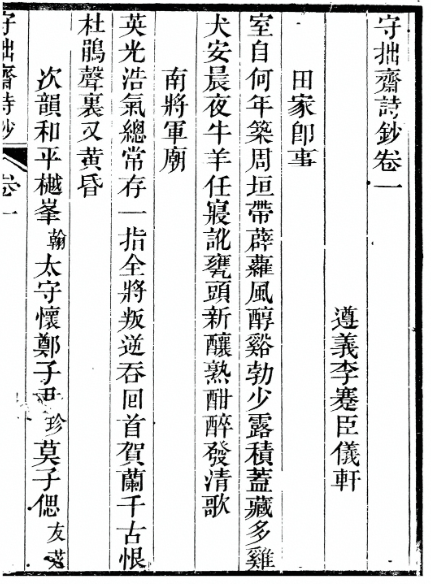 守拙齋詩鈔卷一
遵義李蹇臣儀軒
田家卽事
室自何年築周垣帶薜蘿風醇谿勃少露積蓋藏多雞
犬安晨夜牛羊任寢訛甕頭新釀熟酣醉發清歌
南將軍廟
英光浩氣總常存一指全將叛逆吞回首賀蘭千古恨
杜鵑聲裏又黃昏
次韻和平樾峯翰太守懷鄭子尹珍莫子偲友芝
守拙齋詩鈔 卷一